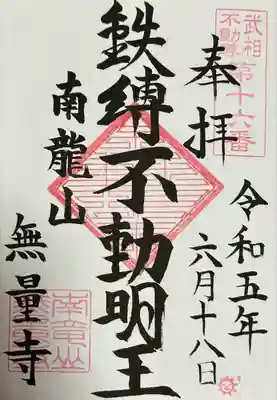 武相
不動尊
第十六番
奉拝
令和五年
六月十八日
鉄縛不動明王
南龍山
無量寺